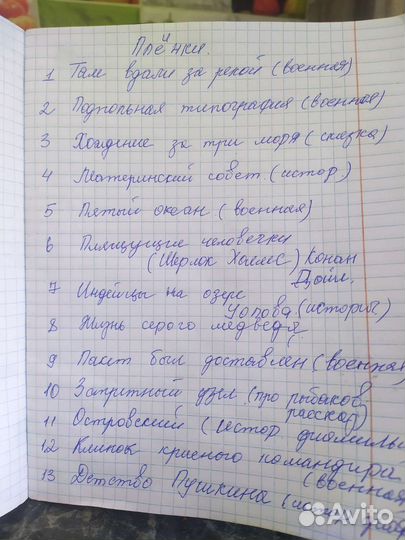 Плёнки.
1 Там вдали за рекой (военная)
2 Подпольная типография (военная)
3 Хождение за три моря (сказка)
4 Материнский совет (истор)
5 Пятый океан (военная)
6 Пляшущие человечки
(Шерлк Холмс) Конан
Дойл.
7 Индейцы на озере
(история)
8 Жизнь серого медведя
9 Пакет был доставлен (военная
10 Запретный узел (про рыбаков
рассказ)
11 Островский (истор.
12 Клинок красного командира
(военная
13 Детство Пушкина
Avito